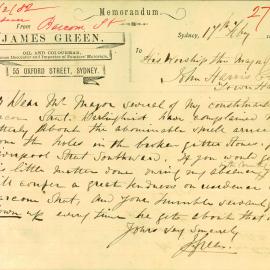 Memorandum.
2/82
From Bascom St
27
JAMES GREEN,
OIL AND COLOURMAN,
55 OXFORD STREET, SYDNEY.
Sydney, 17th
To
His Worship the Mayor
John Harris
Town Hall
Dear Mr Mayor several of my constituents
Street, Darlinghurst, have complained
about the abominable smell arising
from the holes in the broken gutter stones
Liverpool Street Southward. If you would
this little matter done during my absence
will confer a great kindness on residence
Street, and your humble servant
up every time he gets about that
Yours very Sincerely
J Green